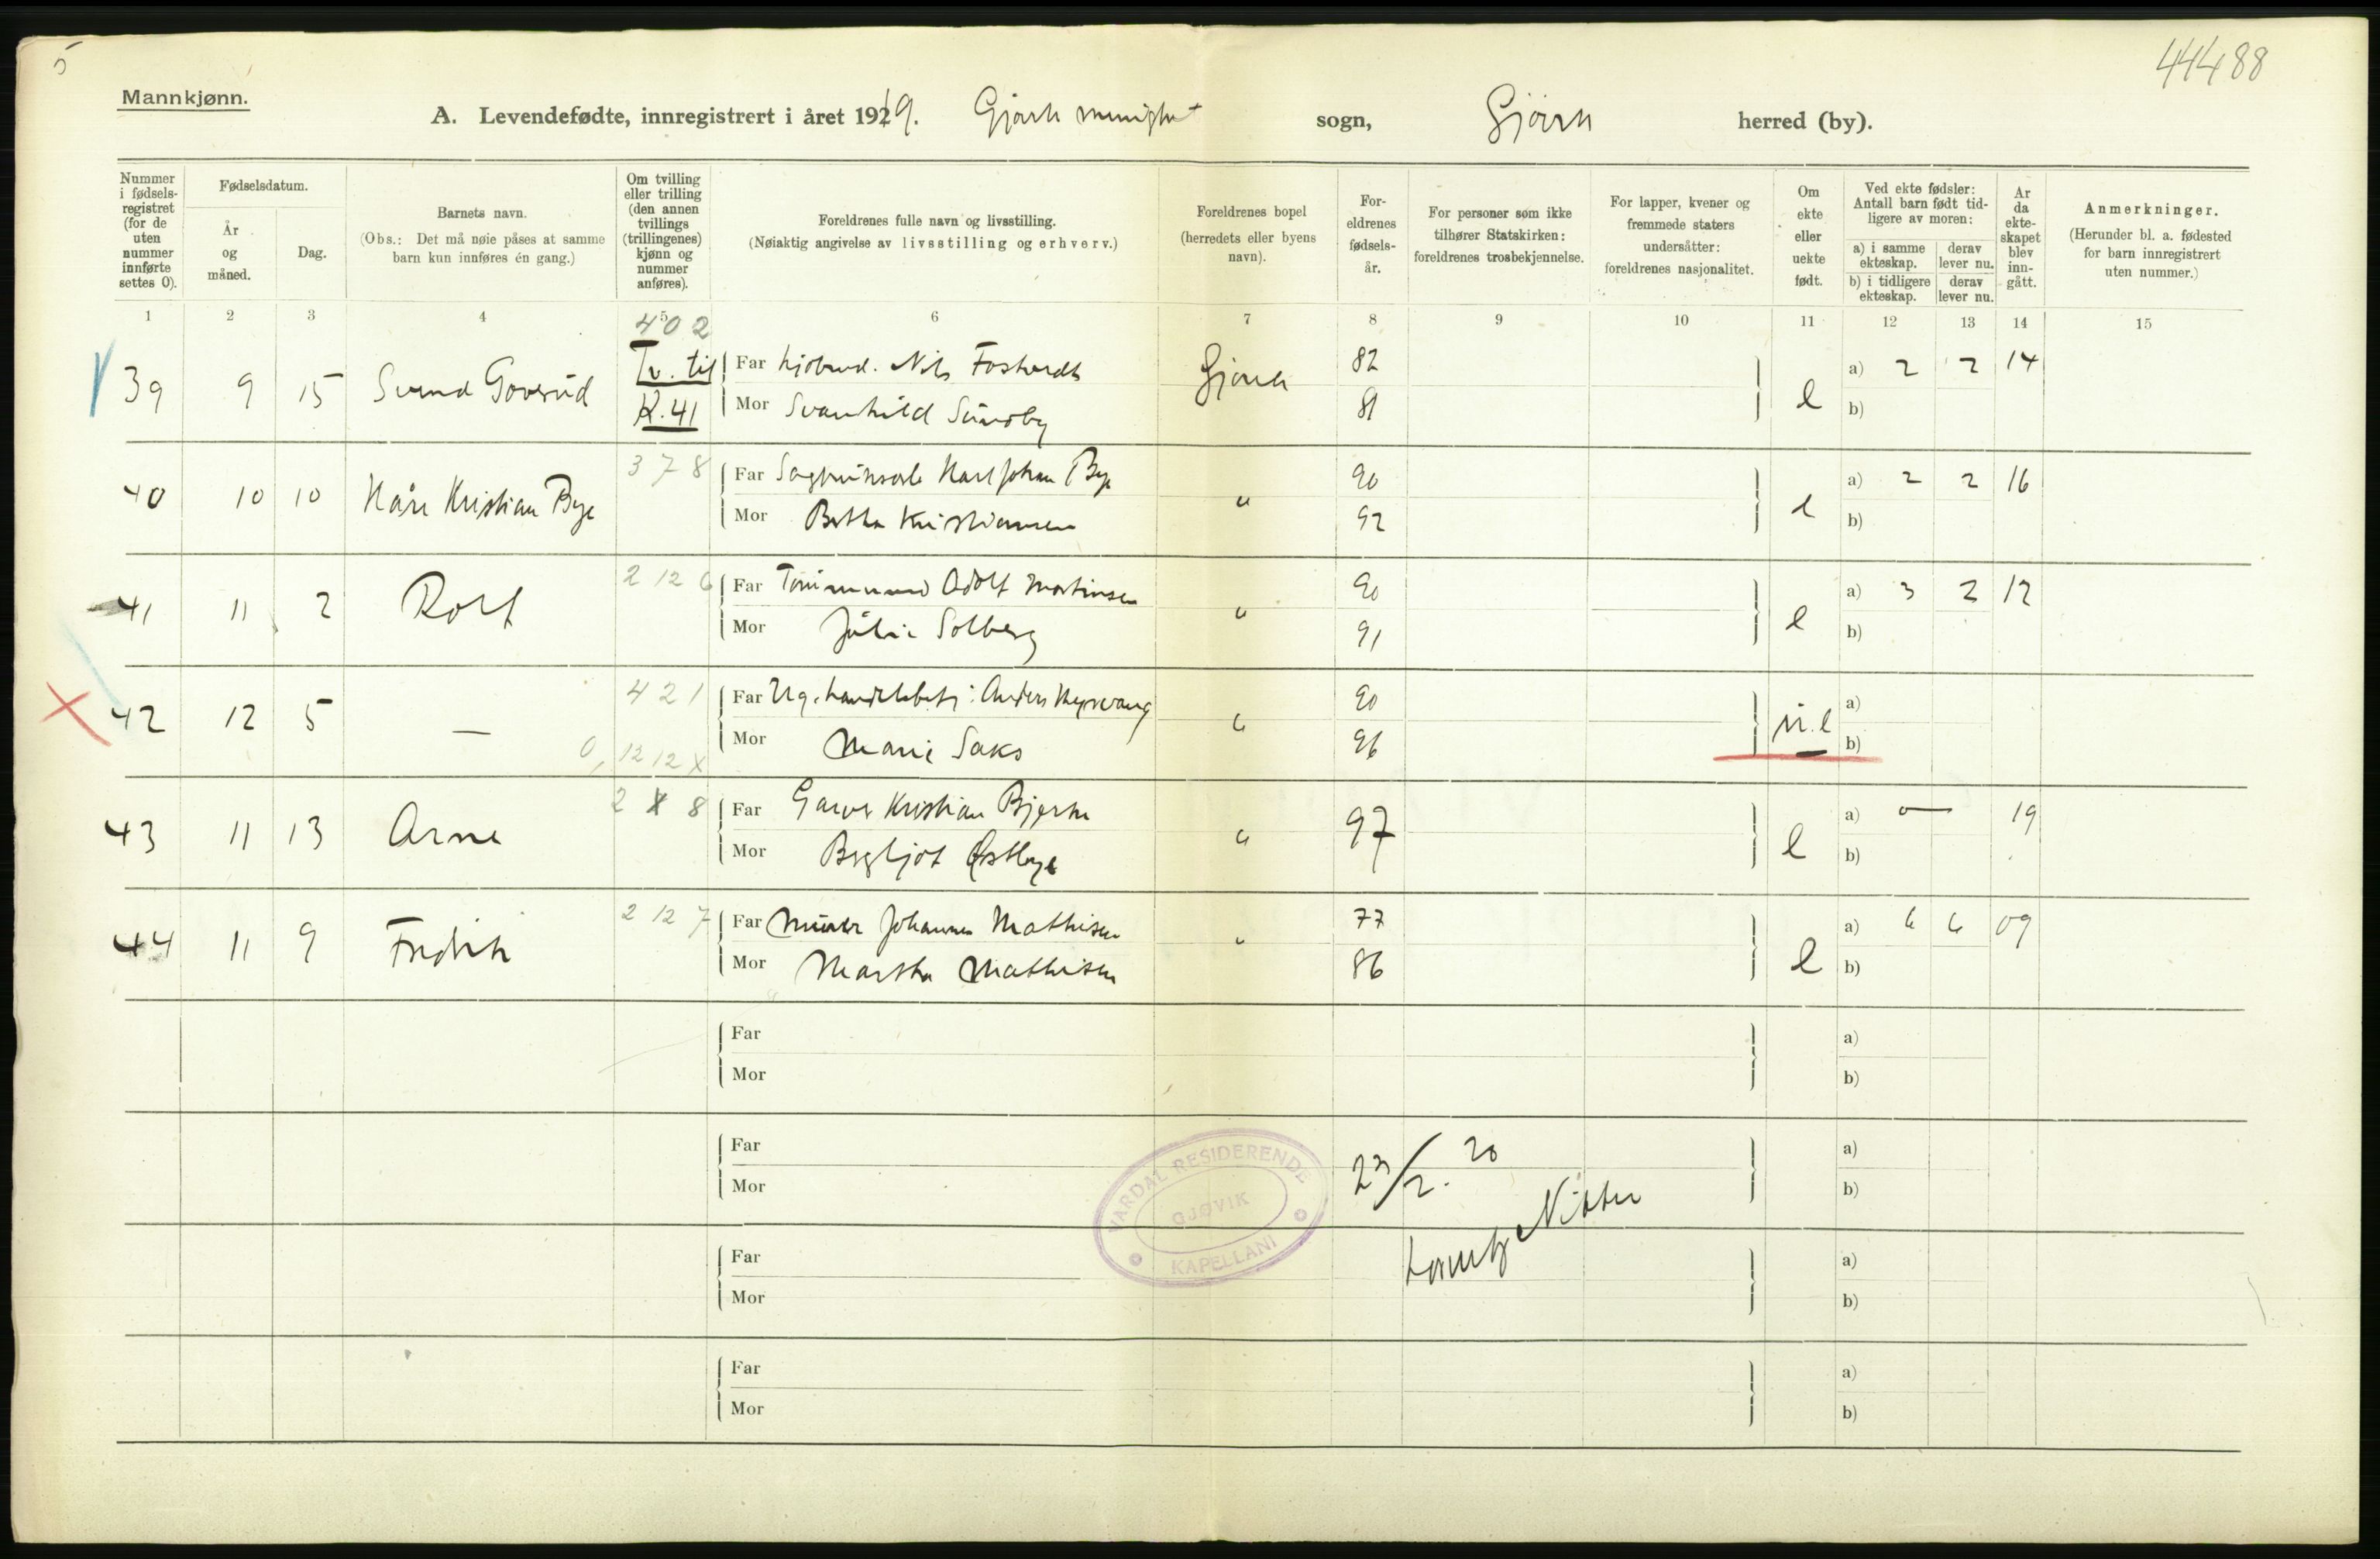 5
44488
Mannkjønn.
A. Levendefødte, innregistrert i året 1919. sogn, Gjøvik herred (by).
Nummer i fødsels-registret (for de uten nummer innførte settes 0).
Fødselsdatum.
År og måned.
Dag.
Barnets navn.
(Obs.: Det må nøie påses at samme barn kun innføres én gang.)
Om tvilling eller trilling (den annen tvillings (trillingenes) kjønn og nummer anføres).
Foreldrenes fulle navn og livsstilling.
(Nøiaktig angivelse av livsstilling og erhverv.)
Foreldrenes bopel (herredets eller byens navn).
For-eldrenes fødsels-år.
For personer som ikke tilhører Statskirken: foreldrenes trosbekjennelse.
For lapper, kvener og fremmede staters undersåtter: foreldrenes nasjonalitet.
Om ekte eller uekte født.
Ved ekte fødsler: Antall barn født tid-ligere av moren:
a) i samme ekteskap.
derav lever nu.
b) i tidligere ekteskap.
derav lever nu.
År da ekte-skapet blev inn-gått.
Anmerkninger.
(Herunder bl. a. fødested for barn innregistrert uten nummer.)
1 2 3 4 5 6 7 8 9 10 11 12 13 14 15
402
39 9 15 Tv. til Far Nils 82 a) 2 2 14
K. 41 Mor Svanhild Sundby Gjøvik 81 e b)
378
40 10 10 Kåre Kristian Bye Far Karl Johan Bye " 90 a) 2 2 16
Mor Kristiansen 92 e b)
2 12 6
41 11 2 Rolf Far Adolf Martinsen " 90 a) 3 2 12
Mor Julie Solberg 91 e b)
421
42 12 5 — Far Ug. Anders " 90 u.e a)
Mor Marie Saks 96 b)
0, 12 12 X
2 X 8
43 11 13 Arne Far Garver Kristian Bjerke " 97 e a) 0 — 19
Mor Bergljot Østbye b)
2 12 7
44 11 9 Fredrik Far Murer Johannes Mathisen " 77 a) 6 6 09
Mor Martha Mathisen 86 e b)
Far a)
Mor b)
Far a)
Mor b)
VARDAL RESIDERENDE KAPELLANI
GJØVIK
23/2. 20
Far a)
Mor b)
Far a)
Mor b)